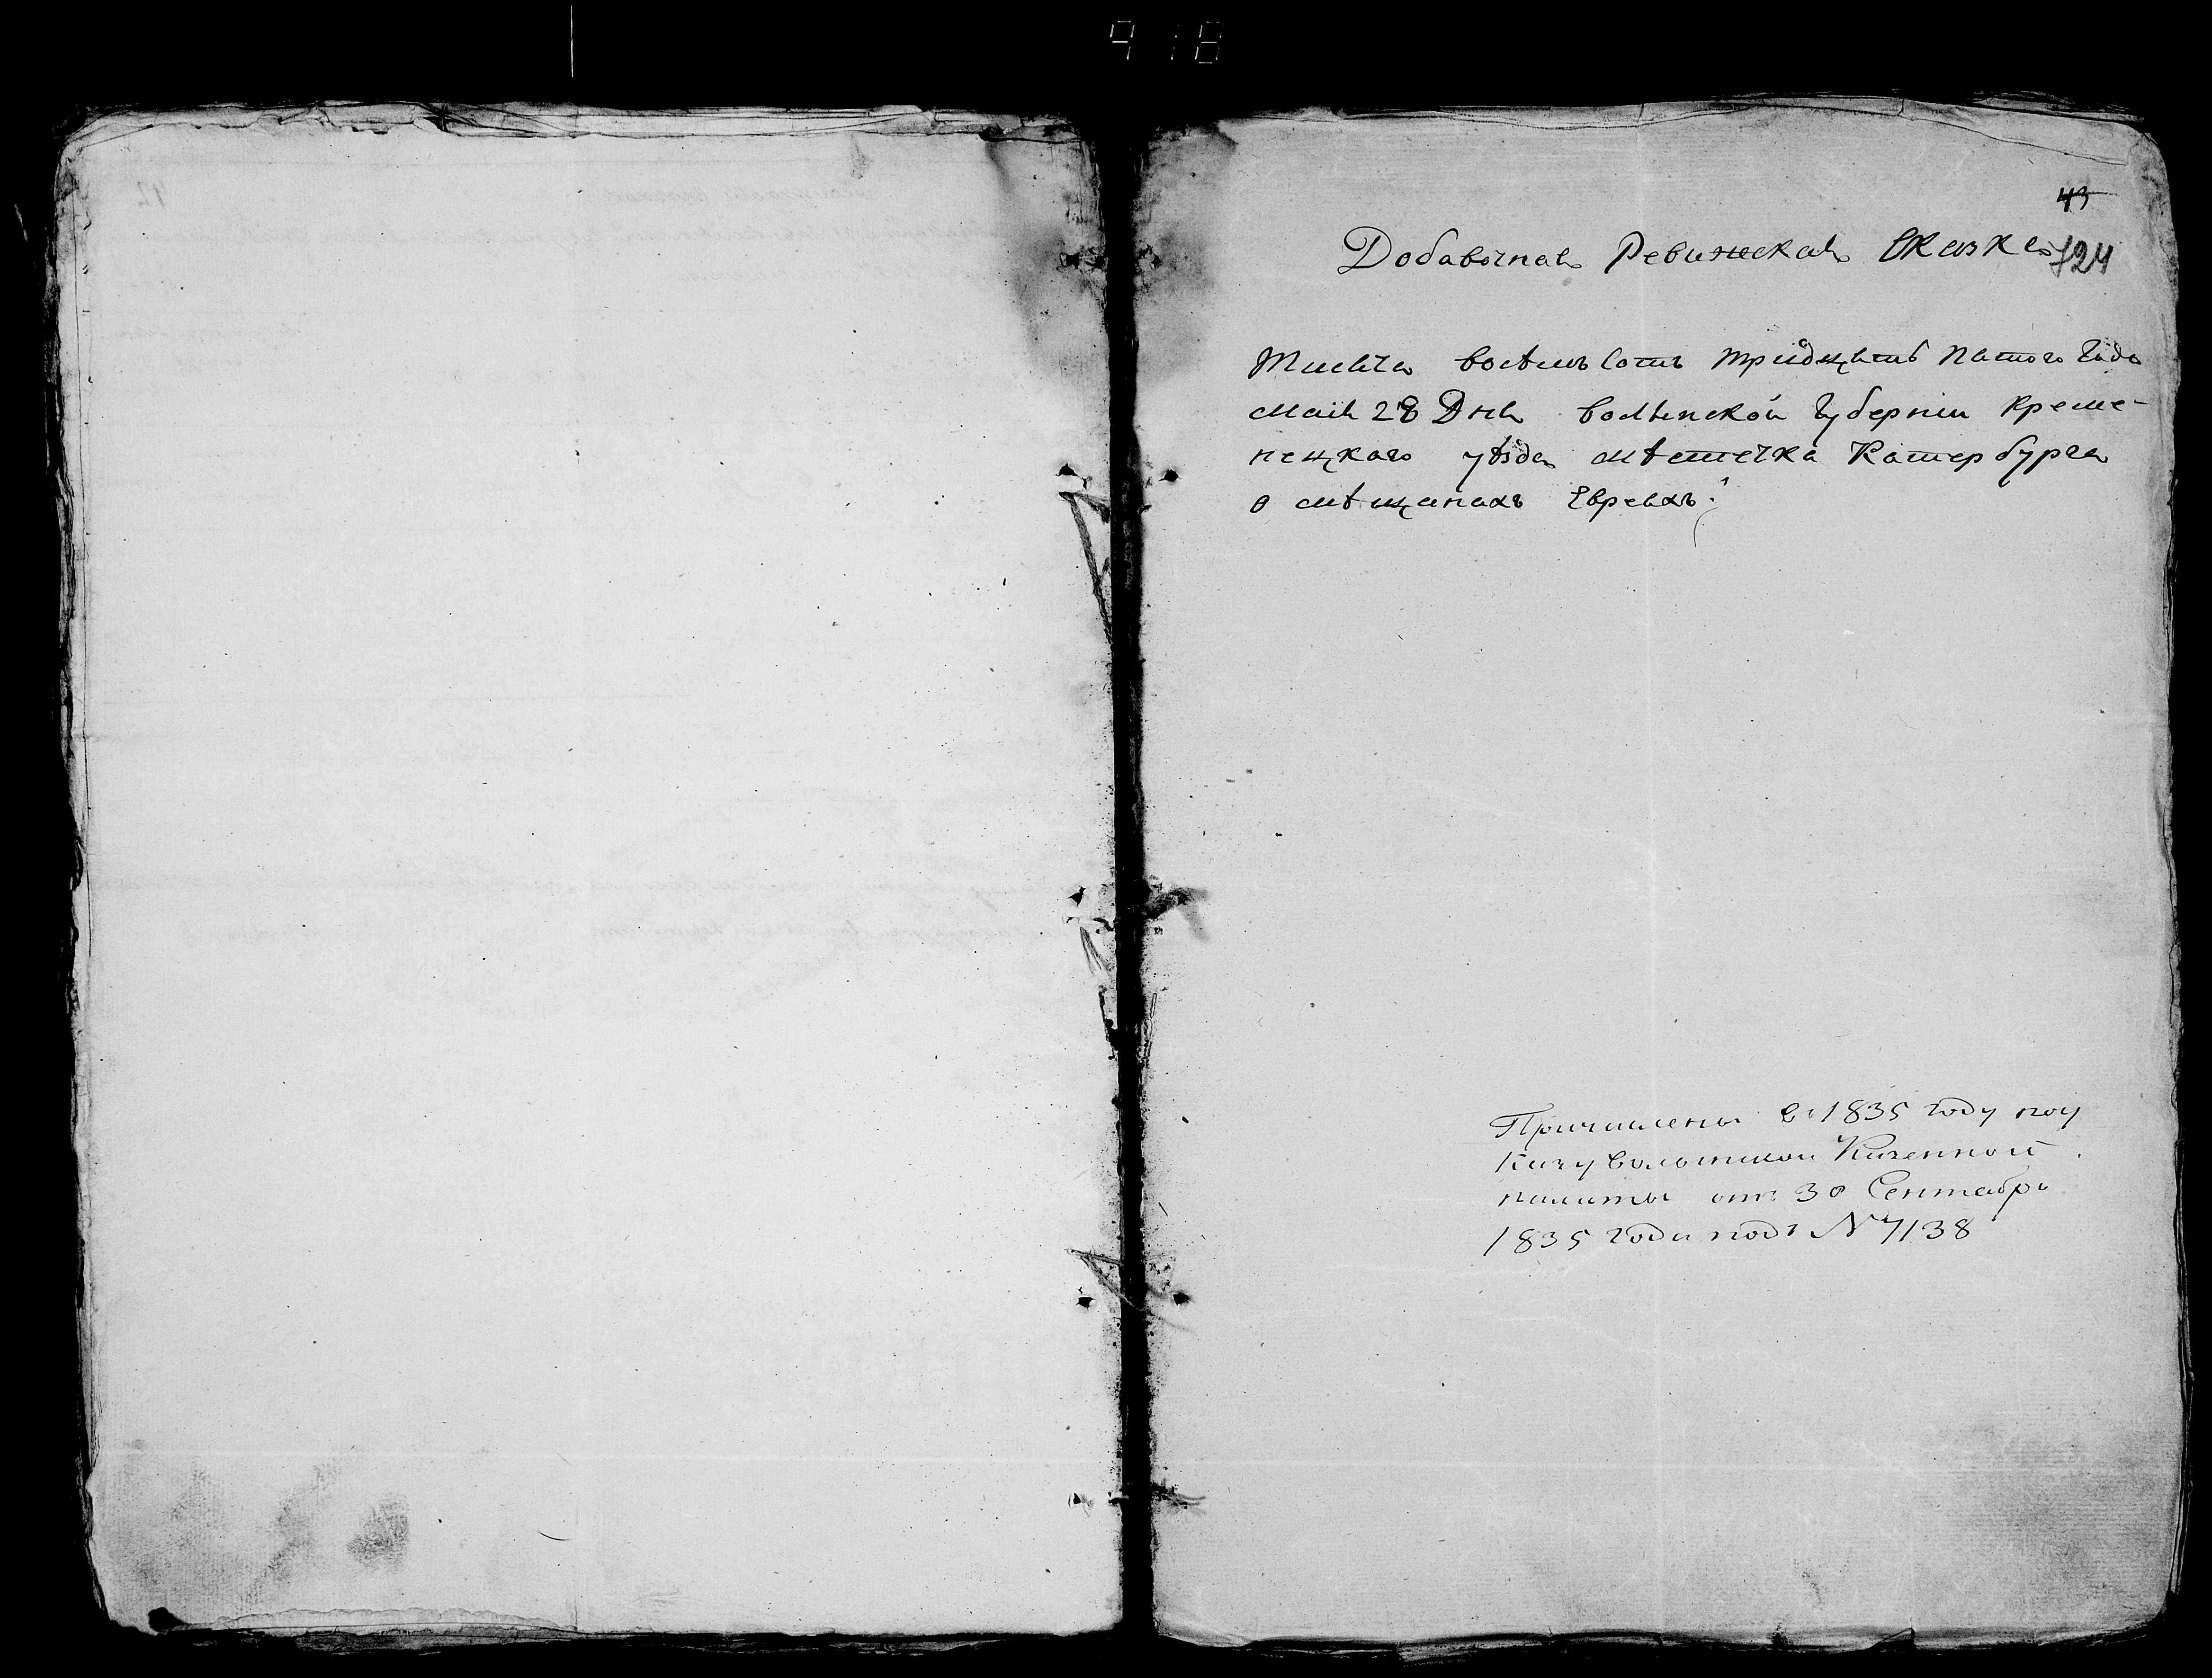 918
43
Добавочная Ревижская Сказка
724
Тысяча восемъ сотъ тридцать пятого Года
Маія 28 Дня волынской Губерніи Креме-
нецкаго уѣзда мѣстечка Катербурга
о мѣщанахъ Евреяхъ:
Причислены въ 1835 году по у
Казу волынской Казенной
палаты отъ 30 Сентабря
1835 года подъ N 7138